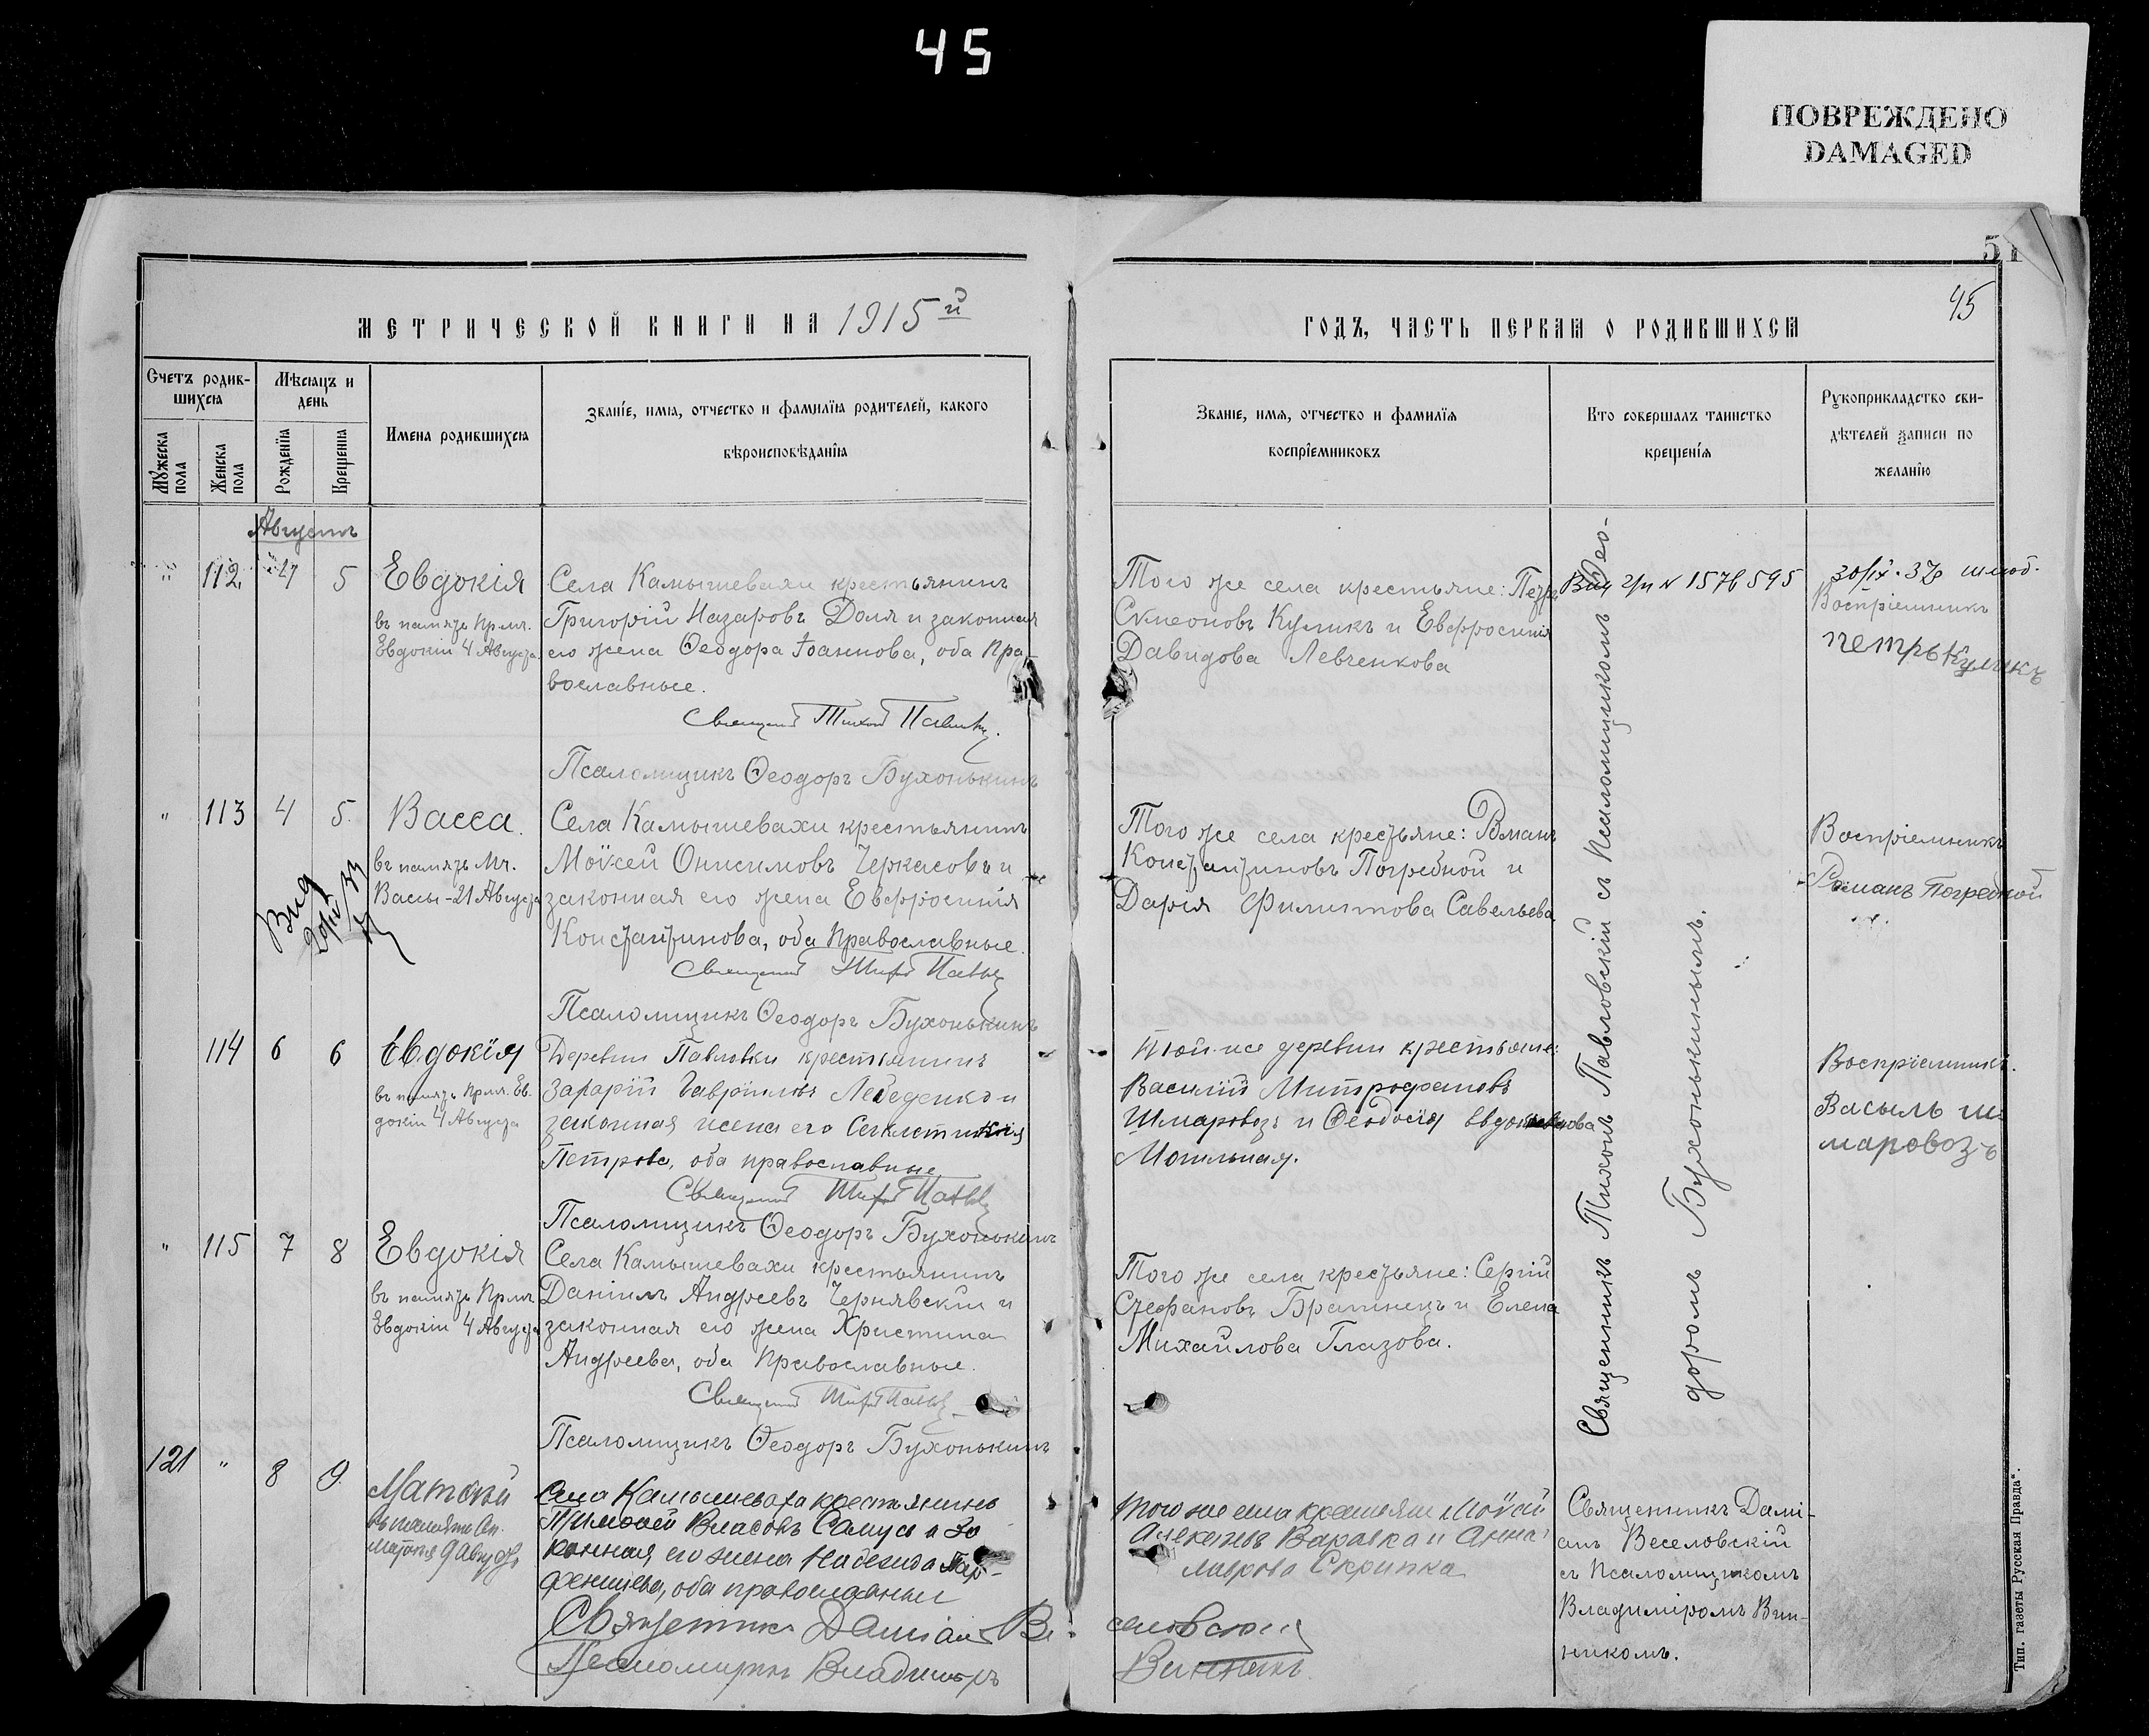 45
ПОВРЕЖДЕНО
DAMAGED
51
45
МЕТРИЧЕСКОЙ КНИГИ НА 1915й
ГОДЪ, ЧАСТЬ ПЕРВАЯ О РОДИВШИХСЯ
Счетъ родив-
шихся
Мѣсяцъ и
день
Мужеска пола
Женска пола
Рожденїя
Крещенїя
Имена родившихся
Званїе, имя, отчество и фамилїя родителей, какого
вѣроисповѣданїя
Званїе, имя, отчество и фамилїя
воспрїемниковъ
Кто совершалъ таинство
крещенїя
Рукоприкладство сви-
дѣтелей записи по
желанїю
Августъ
" 112 4 5
Евдокія
въ память Прмч.
Евдокіи 4 Августа
Села Камышевахи крестьянинъ
Григорій Назаровъ Доля и законная
его жена Ѳеодора Іоаннова, оба Пра-
вославные.
Священникъ Тихонъ
Псаломщикъ Ѳеодоръ Бухонькинъ
Того же села крестьяне: Петръ
Сѵмеоновъ Куликъ и Евфросинія
Давидова Левченкова
N 1576595
Воспріемникъ
Петръ Куликъ
" 113 4 5
Васса.
въ память Мч.
Вассы - 21 Августа
Села Камышевахи крестьянинъ
Моѵсей Онисимовъ Черкасовъ и
законная его жена Евфросинія
Константинова, оба Православные.
Священникъ Тихонъ
Псаломщикъ Ѳеодоръ Бухонькинъ
Того же села крестьяне: Романъ
Константиновъ Погребной и
Дарія Филиппова Савельева
Воспріемникъ
Романъ Погребной
114 6 6
Евдокія
въ память Прмч. Ев-
докіи 4 Августа
Деревни Павловки крестьянинъ
Захарій Гавріиловъ Лебеденко и
законная жена его Сѵнклитикія
Петрова, оба православные
Священникъ Тихонъ
Псаломщикъ Ѳеодоръ Бухонькинъ
Той-же деревни крестьяне:
Василій Митрофановъ
Шмаровозъ и Ѳеодосія
Могильная.
Воспріемникъ.
Василь Ш
маровозъ
" 115 7 8
Евдокія
въ память Прмч.
Евдокіи 4 Августа
Села Камышевахи крестьянинъ
Даніилъ Андреевъ Чернявскій и
законная его жена Христина
Андреева, оба Православные.
Священникъ Тихонъ
Псаломщикъ Ѳеодоръ Бухонькинъ
Того же села крестьяне: Сергій
Стефановъ Братинецъ и Елена
Михайлова Глазова.
Священникъ Тихонъ Павловскій съ Псаломщикомъ Ѳео-
доромъ Бухонькинымъ.
121 " 8 9
Матѳій
въ память Ап.
Матѳія 9 Августа
Села Камышеваха крестьянинъ
Тимоѳей Власовъ Самусь и за
конная его жена Надежда Пар-
феніева, оба православные
Священникъ Даміанъ Веселовскій
Псаломщикъ Владиміръ Винникъ
Того же села крестьяне Моѵсей
Алексѣевъ Варавка и Анна
Лаврова Скрипка
Священникъ Дамі-
анъ Веселовскій
съ Псаломщикомъ
Владиміромъ Вин-
никомъ.
Тип. газеты „Русская Правда“.